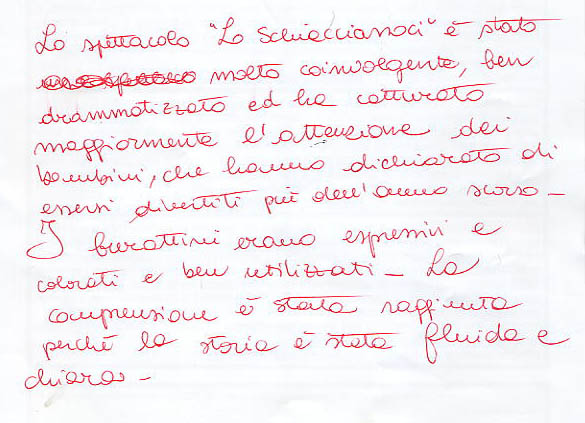 Lo spettacolo "Lo Schiaccianoci" è stato
molto coinvolgente, ben
drammatizzato ed ha catturato
maggiormente l'attenzione dei
bambini, che hanno dichiarato di
essersi divertiti più dell'anno scorso -
I burattini erano espressivi e
colorati e ben utilizzati - La
comprensione è stata raggiunta
perchè la storia è stata fluida e
chiara -